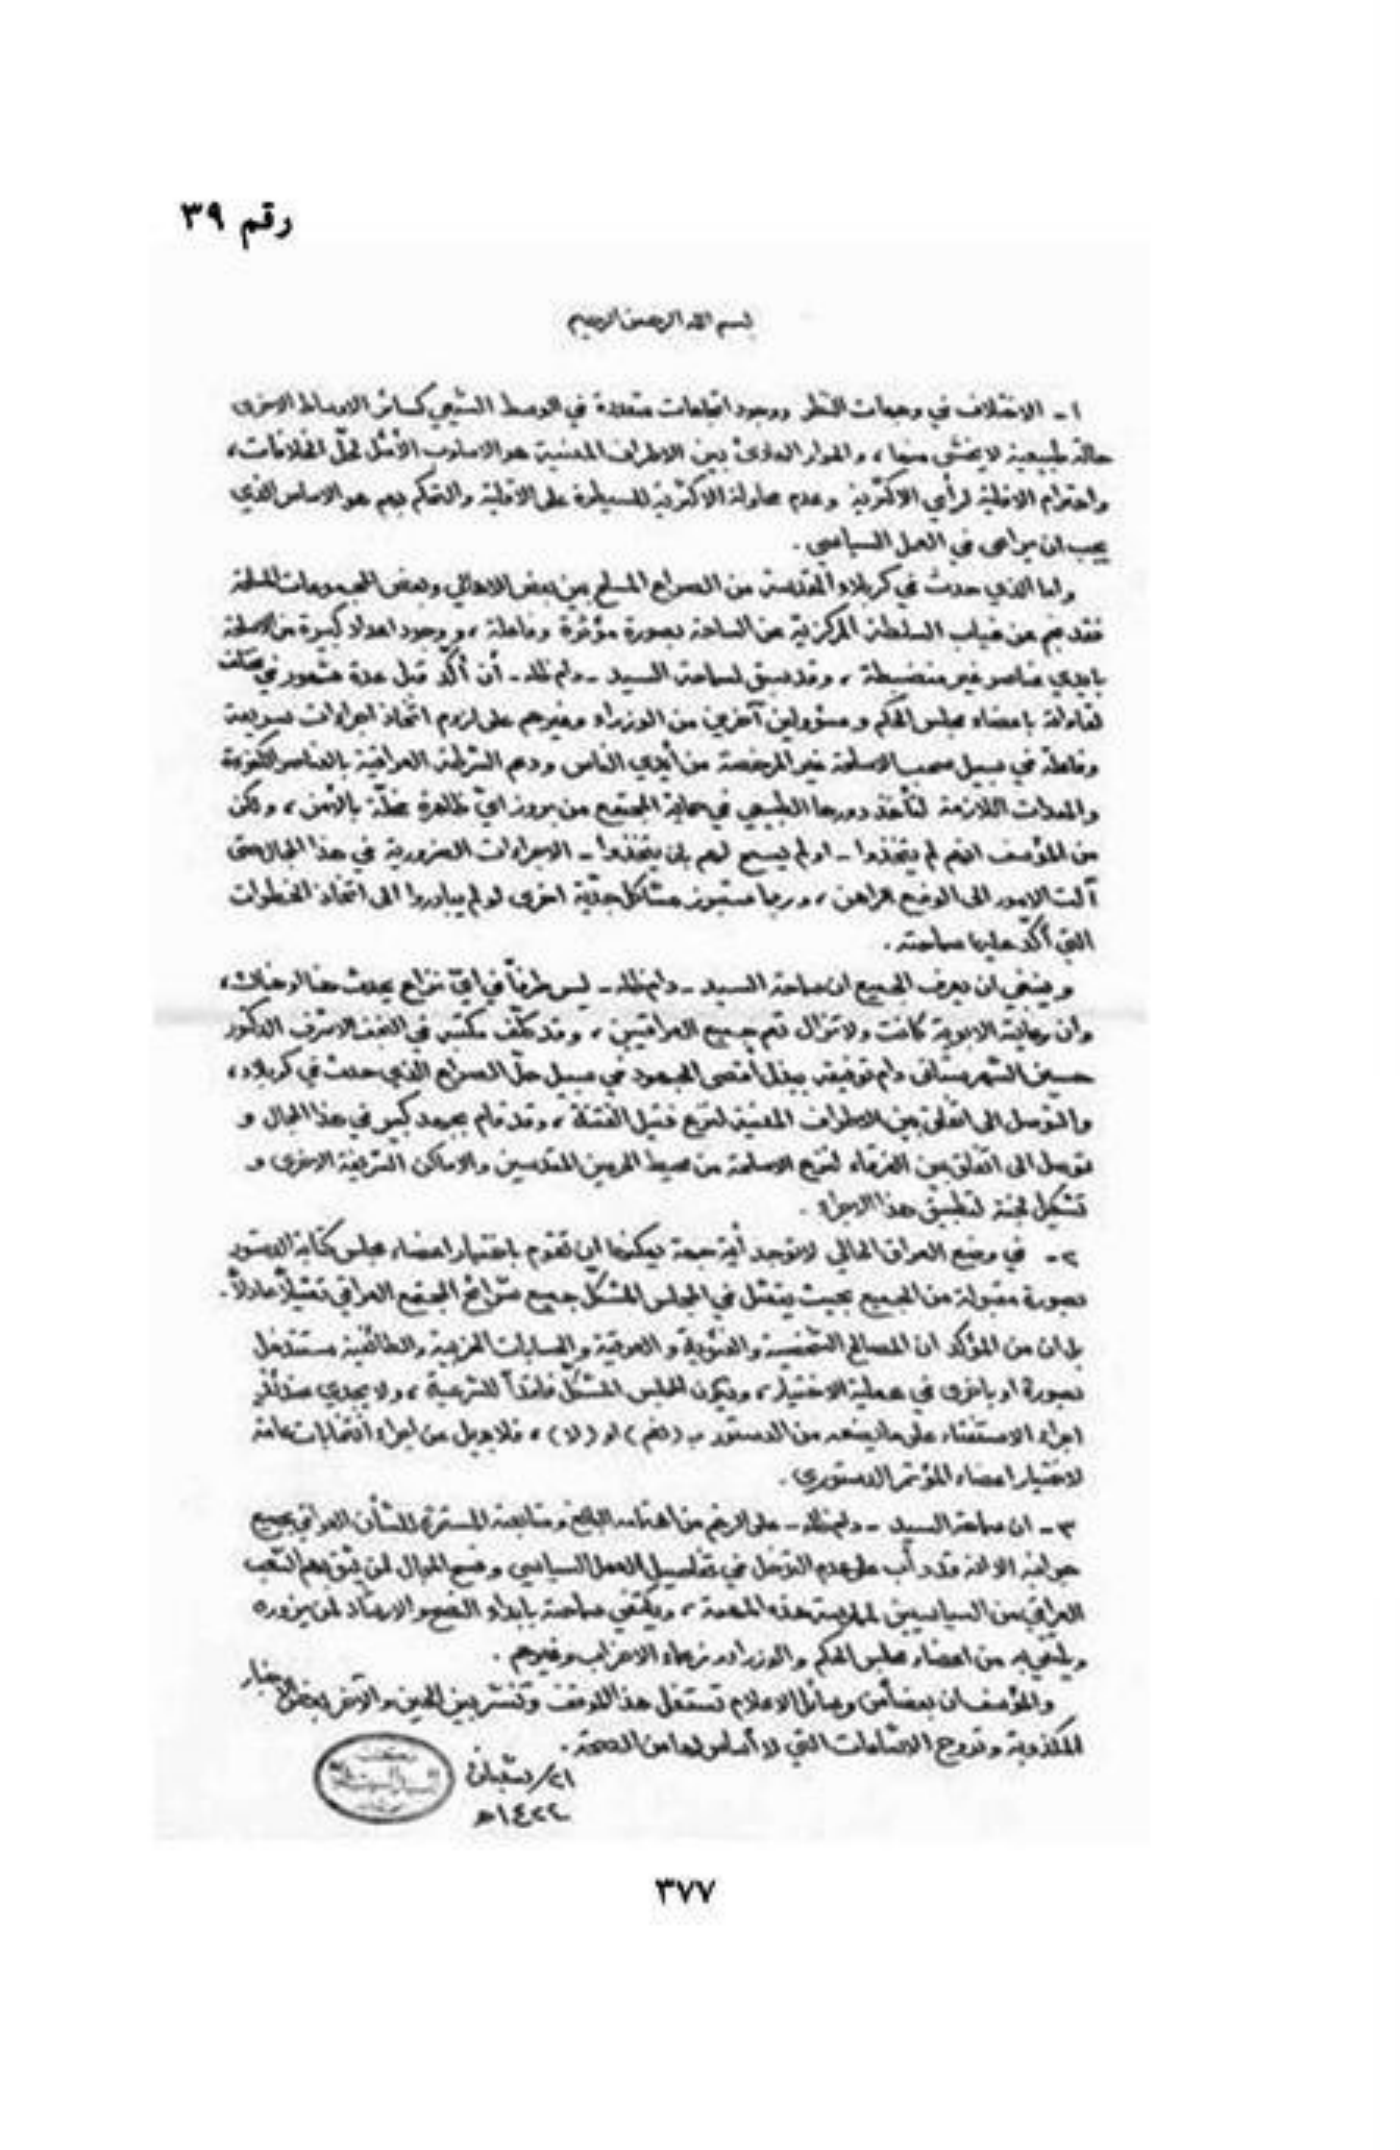 رقم ٣٩
بسم الله الرحمن الرحيم
١ـ الاختلاف في وجهات النظر ووجود اتجاهات متعددة في الوسط الشيعي كسائر الاوساط الاخرى
حالة طبيعية لا يخشى منها ، والحوار الهادئ بين الاطراف المعنية هو الاسلوب الأمثل لحلّ الخلافات ،
واحترام الاقلية لرأي الاكثرية وعدم محاولة الاكثرية للسيطرة على الاقلية والتحكم بهم هو الاساس الذي
يجب ان يراعى في العمل السياسي .
واما الذي حدث في كربلاء المقدسة من الصراع المسلح بين بعض الاهالي وبعض المجموعات المسلحة
فقد نجم عن غياب السلطة المركزية عن الساحة بصورة مؤثرة وفاعلة ، ووجود اعداد كبيرة من الاسلحة
بايدي عناصر غير منضبطة ، وقد سبق لسماحة السيد ـ دام ظله ـ أن أكّد قبل عدة شهور في مختلف
لقاءاته باعضاء مجلس الحكم ومسؤولين آخرين من الوزراء وغيرهم على لزوم اتخاذ اجراءات سريعة
وفاعلة في سبيل سحب الاسلحة غير المرخصة من أيدي الناس ودعم الشرطة العراقية بالعناصر الكفوءة
والمعدات اللازمة لتأخذ دورها الطبيعي في حماية المجتمع من بروز ايّ ظاهرة مخلّة بالأمن ، ولكن
من المؤسف انهم لم يتخذوا ـ او لم يسمح لهم بان يتخذوا ـ الاجراءات الضرورية في هذا المجال حتى
آلت الامور الى الوضع الراهن ، وربما ستبرز مشاكل جدّية اخرى لو لم يبادروا الى اتخاذ الخطوات
التي أكّد عليها سماحته .
وينبغي ان يعرف الجميع ان سماحة السيد ـ دام ظله ـ ليس طرفاً في ايّ نزاع يحدث هنا او هناك ،
وأن رعايته الابوية كانت ولا تزال تعم جميع العراقيين ، وقد كلّف مكتبه في النجف الاشرف الدكتور
حسين الشهرستاني دام توفيقه ببذل أقصى الجهود في سبيل حلّ الصراع الذي حدث في كربلاء ،
والتوصل الى اتفاق بين الاطراف المعنية لنزع فتيل الفتنة ، وقد قام بجهد كبير في هذا المجال و
توصل الى اتفاق بين الفرقاء لنزع الاسلحة من محيط الحرمين المقدسين والاماكن الشريفة الاخرى و
تشكيل لجنة لتطبيق هذا الاجراء .
٢ـ في وضع العراق الحالي لا توجد أية جهة يمكنها ان تقوم باختيار اعضاء مجلس كتابة الدستور
بصورة مقبولة من الجميع بحيث يتمثل في المجلس المشكّل جميع شرائح المجتمع العراقي تمثيلاً عادلاً .
بل ان من المؤكد ان المصالح الشخصية والفئوية والعرقية والحسابات الحزبية والطائفية ستتدخل
بصورة او باخرى في عملية الاختيار ، ويكون المجلس المشكّل فاقداً للشرعية ، ولا يجدي عندئذٍ
اجراء الاستفتاء على ما يضعه من الدستور بـ (نعم) او (لا) ، فلا بديل عن اجراء انتخابات عامة
لاختيار اعضاء المؤتمر الدستوري .
٣ـ ان سماحة السيد ـ دام ظله ـ على الرغم من اهتمامه البالغ ومتابعته المستمرة للشأن العراقي بجميع
جوانبه الا انه قد دأب على عدم التدخل في تفاصيل العمل السياسي وفسح المجال لمن يثق بهم الشعب
العراقي من السياسيين لممارسة هذه المهمة ، ويكتفي سماحته بابداء النصح والارشاد لمن يزوره
ويلتقي به من اعضاء مجلس الحكم والوزراء وزعماء الاحزاب وغيرهم .
والمؤسف ان بعضاً من وسائل الاعلام تستغل هذا الموقف وتنشر بين الحين والآخر بعض الاخبار
المكذوبة وتروج الاشاعات التي لا أساس لها من الصحة .
٢١/ شعبان
١٤٢٤هـ
٣٧٧